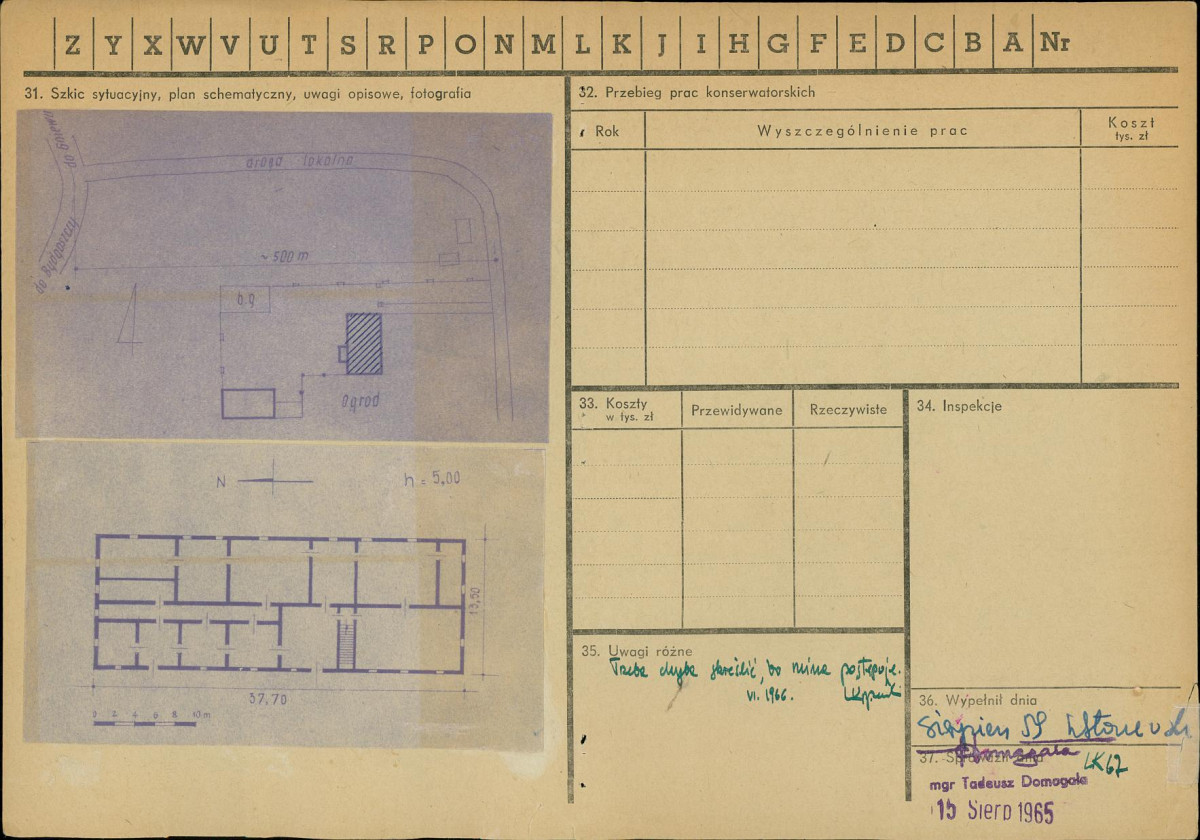 Z Y X W V U T S R P O N M L K J I H G F E D C B A Nr
31. Szkic sytuacyjny, plan schematyczny, uwagi opisowe, fotografia
do Gniewu
do Bydgoszczy
droga lokalna
~ 500 m
b.g
Ogrod
N
h = 5,00
13,50
37,70
0 2 4 6 8 10 m
32. Przebieg prac konserwatorskich
Rok
Wyszczególnienie prac
Koszt
tys. zł
33. Koszty
w tys. zł
Przewidywane
Rzeczywiste
34. Inspekcje
35. Uwagi różne
Trzeba chyba skreślić, bo ruina postępuje.
VI. 1966.
36. Wypełnił dnia
Sierpień 59
37. Sprawdził dnia
Domagała
LK67
mgr Tadeusz Domagała
15 Sierp 1965